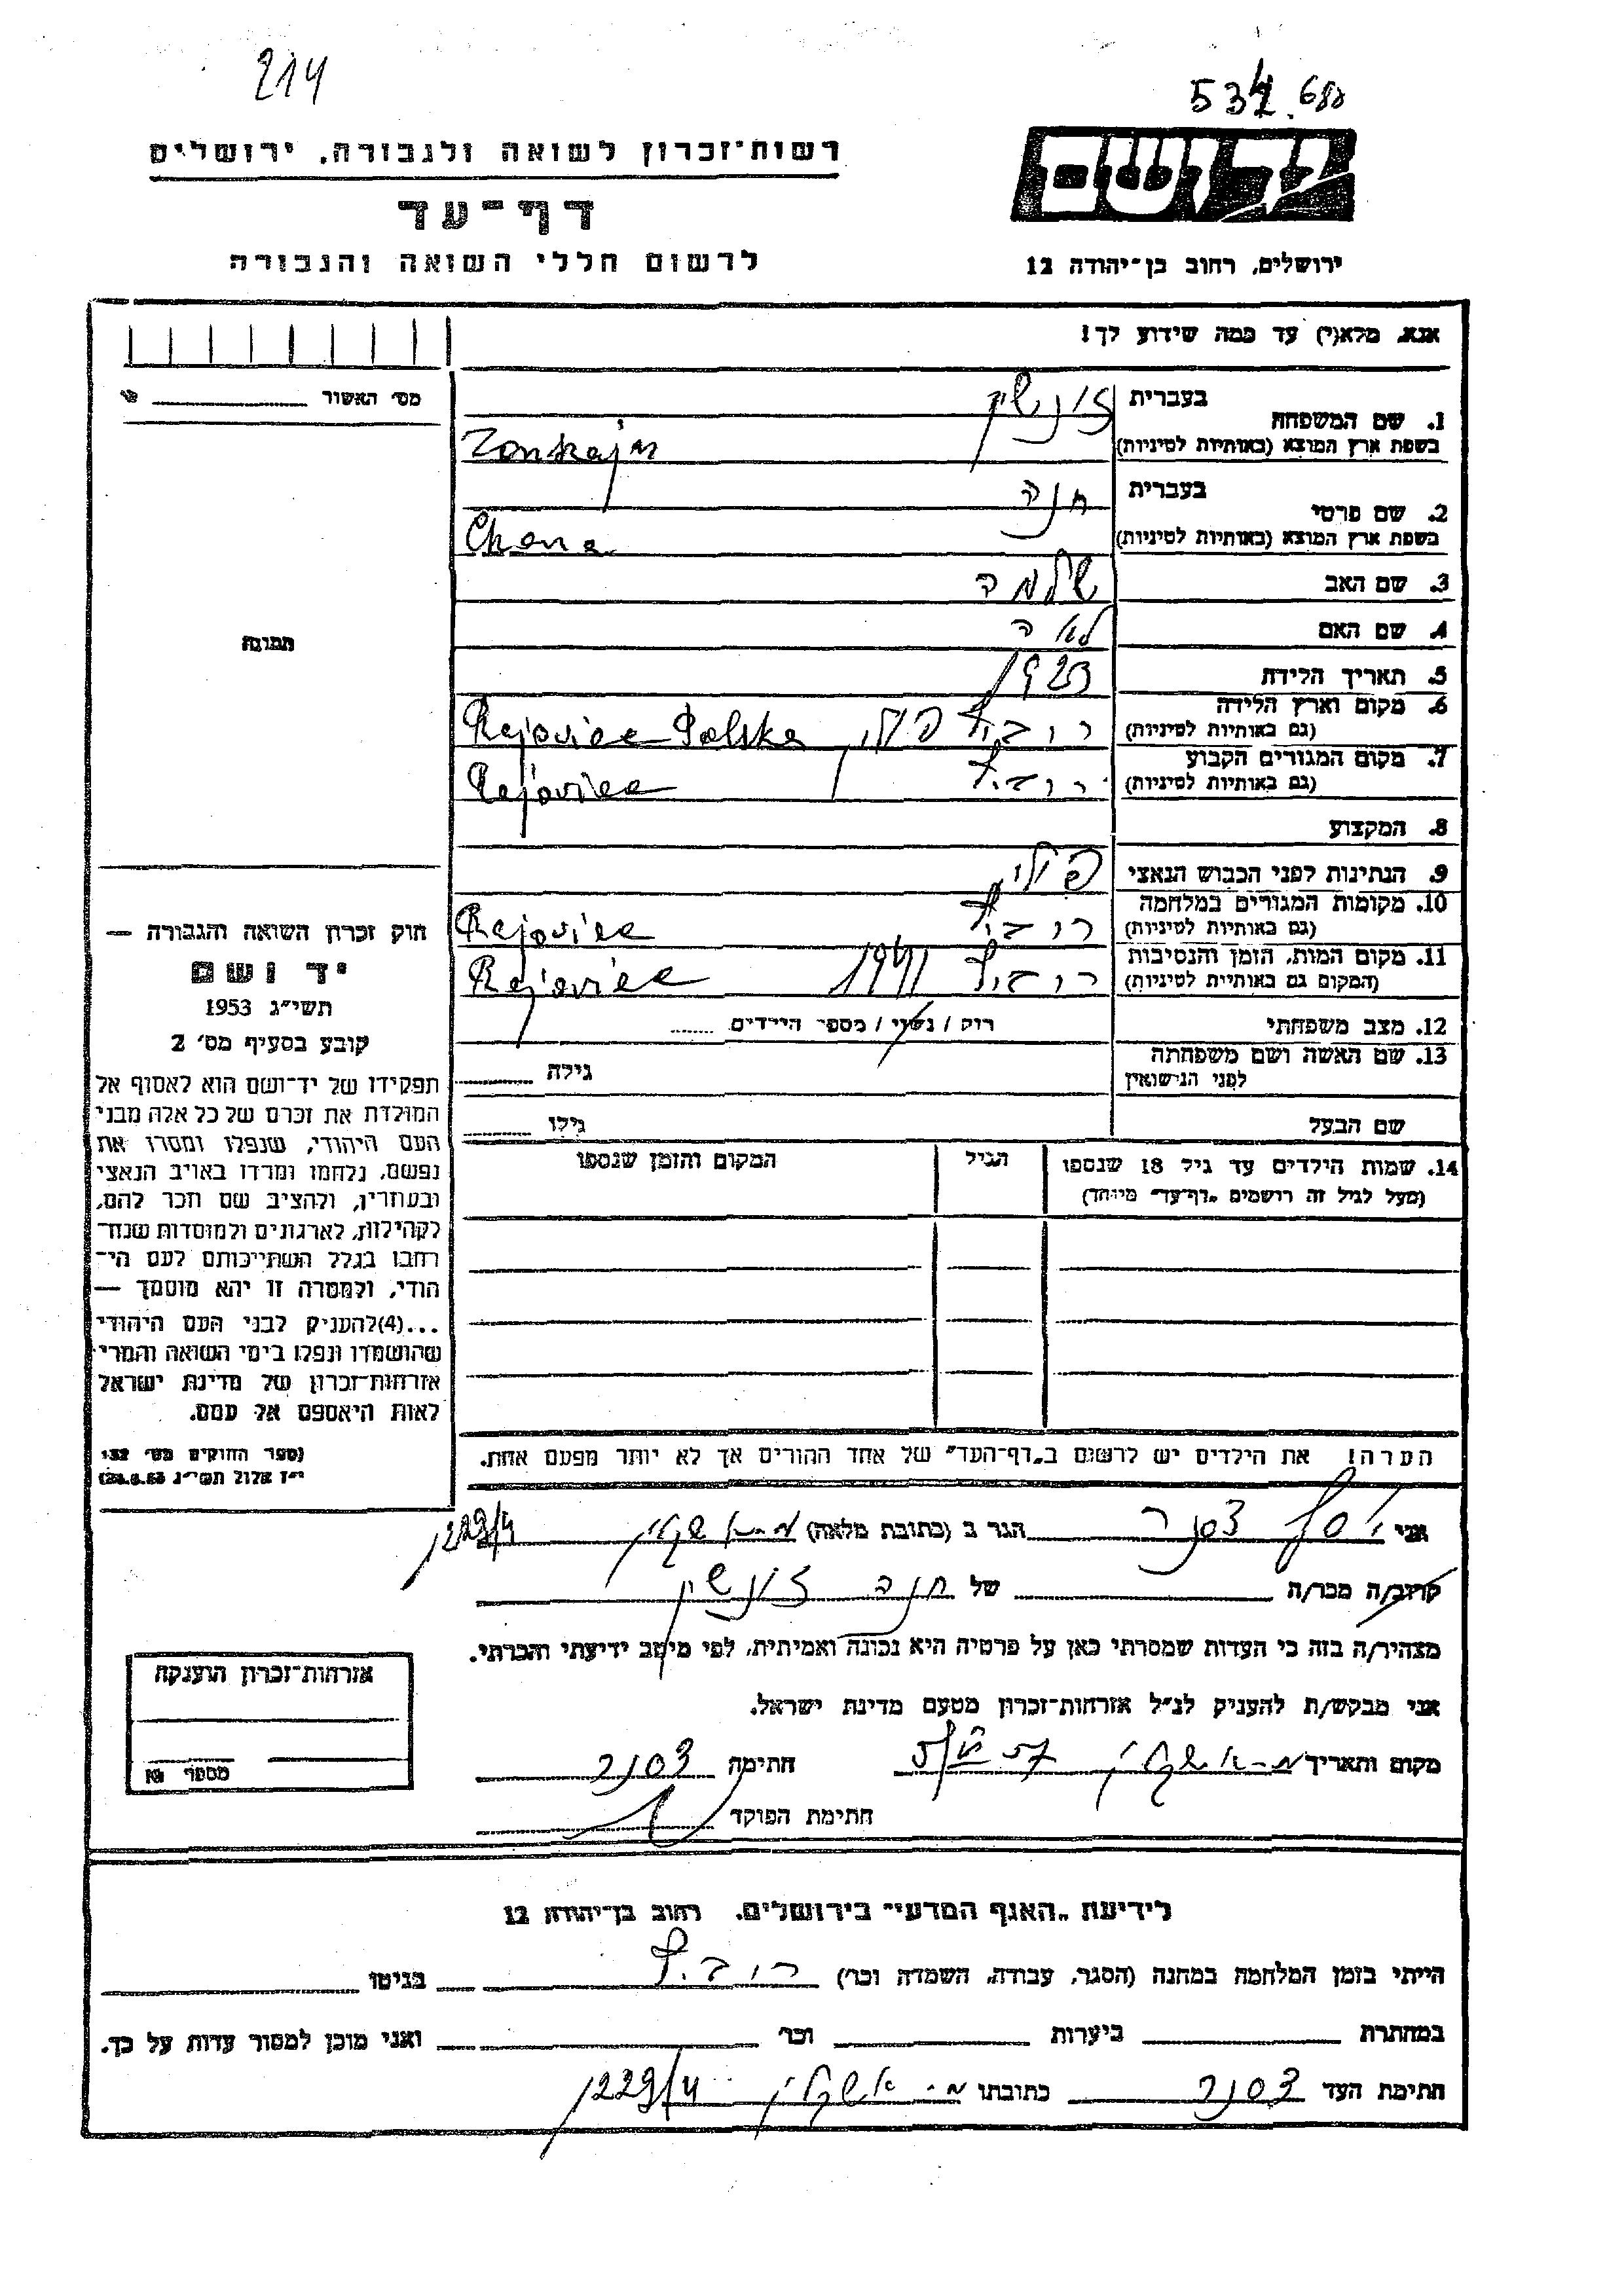 214
534
רשות־זכרון לשואה ולגבורה, ירושלים
יד ושם
דף־עד
לרשום חללי השואה והגבורה
ירושלים, רחוב בן־יהודה 12
אנא, מלא(י) עד כמה שידוע לך!
מס׳ האשור
בעברית
1. שם המשפחה
בשפת ארץ המוצא (באותיות לטיניות) Zonszajn
בעברית חנה
2. שם פרטי
בשפת ארץ המוצא (באותיות לטיניות) Chana
3. שם האב שלמה
4. שם האם לאה
תמונה
5. תאריך הלידה 1923
6. מקום וארץ הלידה רוביץ פולין Rejoviec Polska
(גם באותיות לטיניות)
7. מקום המגורים הקבוע רוביץ Rejoviec
(גם באותיות לטיניות)
8. המקצוע
9. הנתינות לפני הכבוש הנאצי פולין
10. מקומות המגורים במלחמה רוביץ Rejoviec
(גם באותיות לטיניות)
11. מקום המות, הזמן והנסיבות רוביץ 1941 Rejoviec
(המקום גם באותיות לטיניות)
12. מצב משפחתי רוק / נשוי / מספר הילדים
13. שם האשה ושם משפחתה גילה
לפני הנישואין
שם הבעל גילו
14. שמות הילדים עד גיל 18 שנספו הגיל המקום והזמן שנספו
(מעל לגיל זה רושמים „דף־עד״ מיוחד)
חוק זכרון השואה והגבורה —
יד ושם
תשי״ג 1953
קובע בסעיף מס׳ 2
תפקידו של יד־ושם הוא לאסוף אל
המולדת את זכרם של כל אלה מבני
העם היהודי, שנפלו ומסרו את
נפשם, נלחמו ומרדו באויב הנאצי
ובעוזריו, ולהציב שם וזכר להם,
לקהילות, לארגונים ולמוסדות שנח־
רבו בגלל השתייכותם לעם הי־
הודי, ולמטרה זו יהא מוסמך —
...(4)להעניק לבני העם היהודי
שהושמדו ונפלו בימי השואה והמרי
אזרחות־זכרון של מדינת ישראל
לאות היאספם אל עמם.
(ספר החוקים מס׳ 132
י״ז אלול תשי״ג 28.8.53)
הערה! את הילדים יש לרשום ב„דף־העד״ של אחד ההורים אך לא יותר מפעם אחת.
אני יוסף צסנר הגר ב (כתובת מלאה) מ- אשקלון 1229/4
קרוב/ה מכר/ה של חנה
מצהיר/ה בזה כי העדות שמסרתי כאן על פרטיה היא נכונה ואמיתית, לפי מיטב ידיעתי והכרתי.
אני מבקש/ת להעניק לנ״ל אזרחות־זכרון מטעם מדינת ישראל.
מקום ותאריך מ- אשקלון חתימה צסנר
חתימת הפוקד
אזרחות־זכרון הוענקה
מספר
לידיעת „האגף המדעי״ בירושלים, רחוב בן־יהודה 12
הייתי בזמן המלחמה במחנה (הסגר, עבודה, השמדה וכו׳) רוביץ בגיטו
במחתרת ביערות וכו׳ ואני מוכן למסור עדות על כך.
חתימת העד צסנר כתובתו מ- אשקלון 1229/4